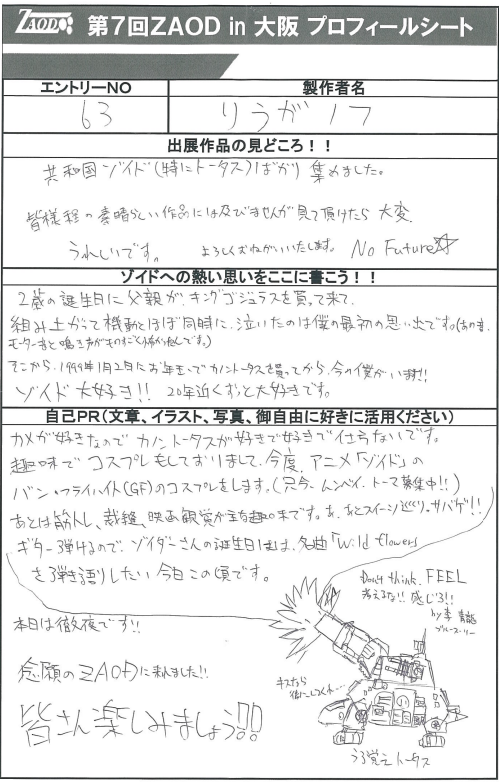 ZAOD 第7回ZAOD in 大阪 プロフィールシート
エントリーNO 製作者名
63 りうがノフ
出展作品の見どころ!!
共和国ゾイド(特にトータス)ばかり集めました。
皆様程の素晴らしい作品には及びませんが見て頂けたら大変
うれしいです。 よろしくおねがいいたします。 No Future☆
ゾイドへの熱い思いをここに書こう!!
2歳の誕生日に父親がキングゴジュラスを買って来て、
組み上がって機動とほぼ同時に、泣いたのは僕の最初の思い出です。(あのま、
モーター音と鳴き声がものすごく怖かったんです。)
そこから、1999年1月2日にお年玉でカノントータスを買ってから、今の僕がいます!!
ゾイド大好き!! 20年近くずっと大好きです。
自己PR(文章、イラスト、写真、御自由に好きに活用ください)
カメが好きなのでカノントータスが好きで好きで仕方ないです。
趣味でコスプレもしておりまして、今度、アニメ「ゾイド」の
バン・フライハイト(GF)のコスプレをします。(只今、ムンベイ、トーマ募集中!!)
あとは筋トレ、裁縫、映画観賞が主な趣味です。あ、あとスイーツ巡り。サバゲ!!
ギター弾けるので、ゾイダーさんの誕生日には、名曲「Wild flowers
を弾き語りしたい今日この頃です。
Don't think. FEEL
考えるな!! 感じろ!!
by 李 青龍
ブルース・リー
本日は徹夜です!!
念願のZAODに来れました!!
キズなら
後にしてくれ…
皆さん楽しみましょう!!
うろ覚えトータス